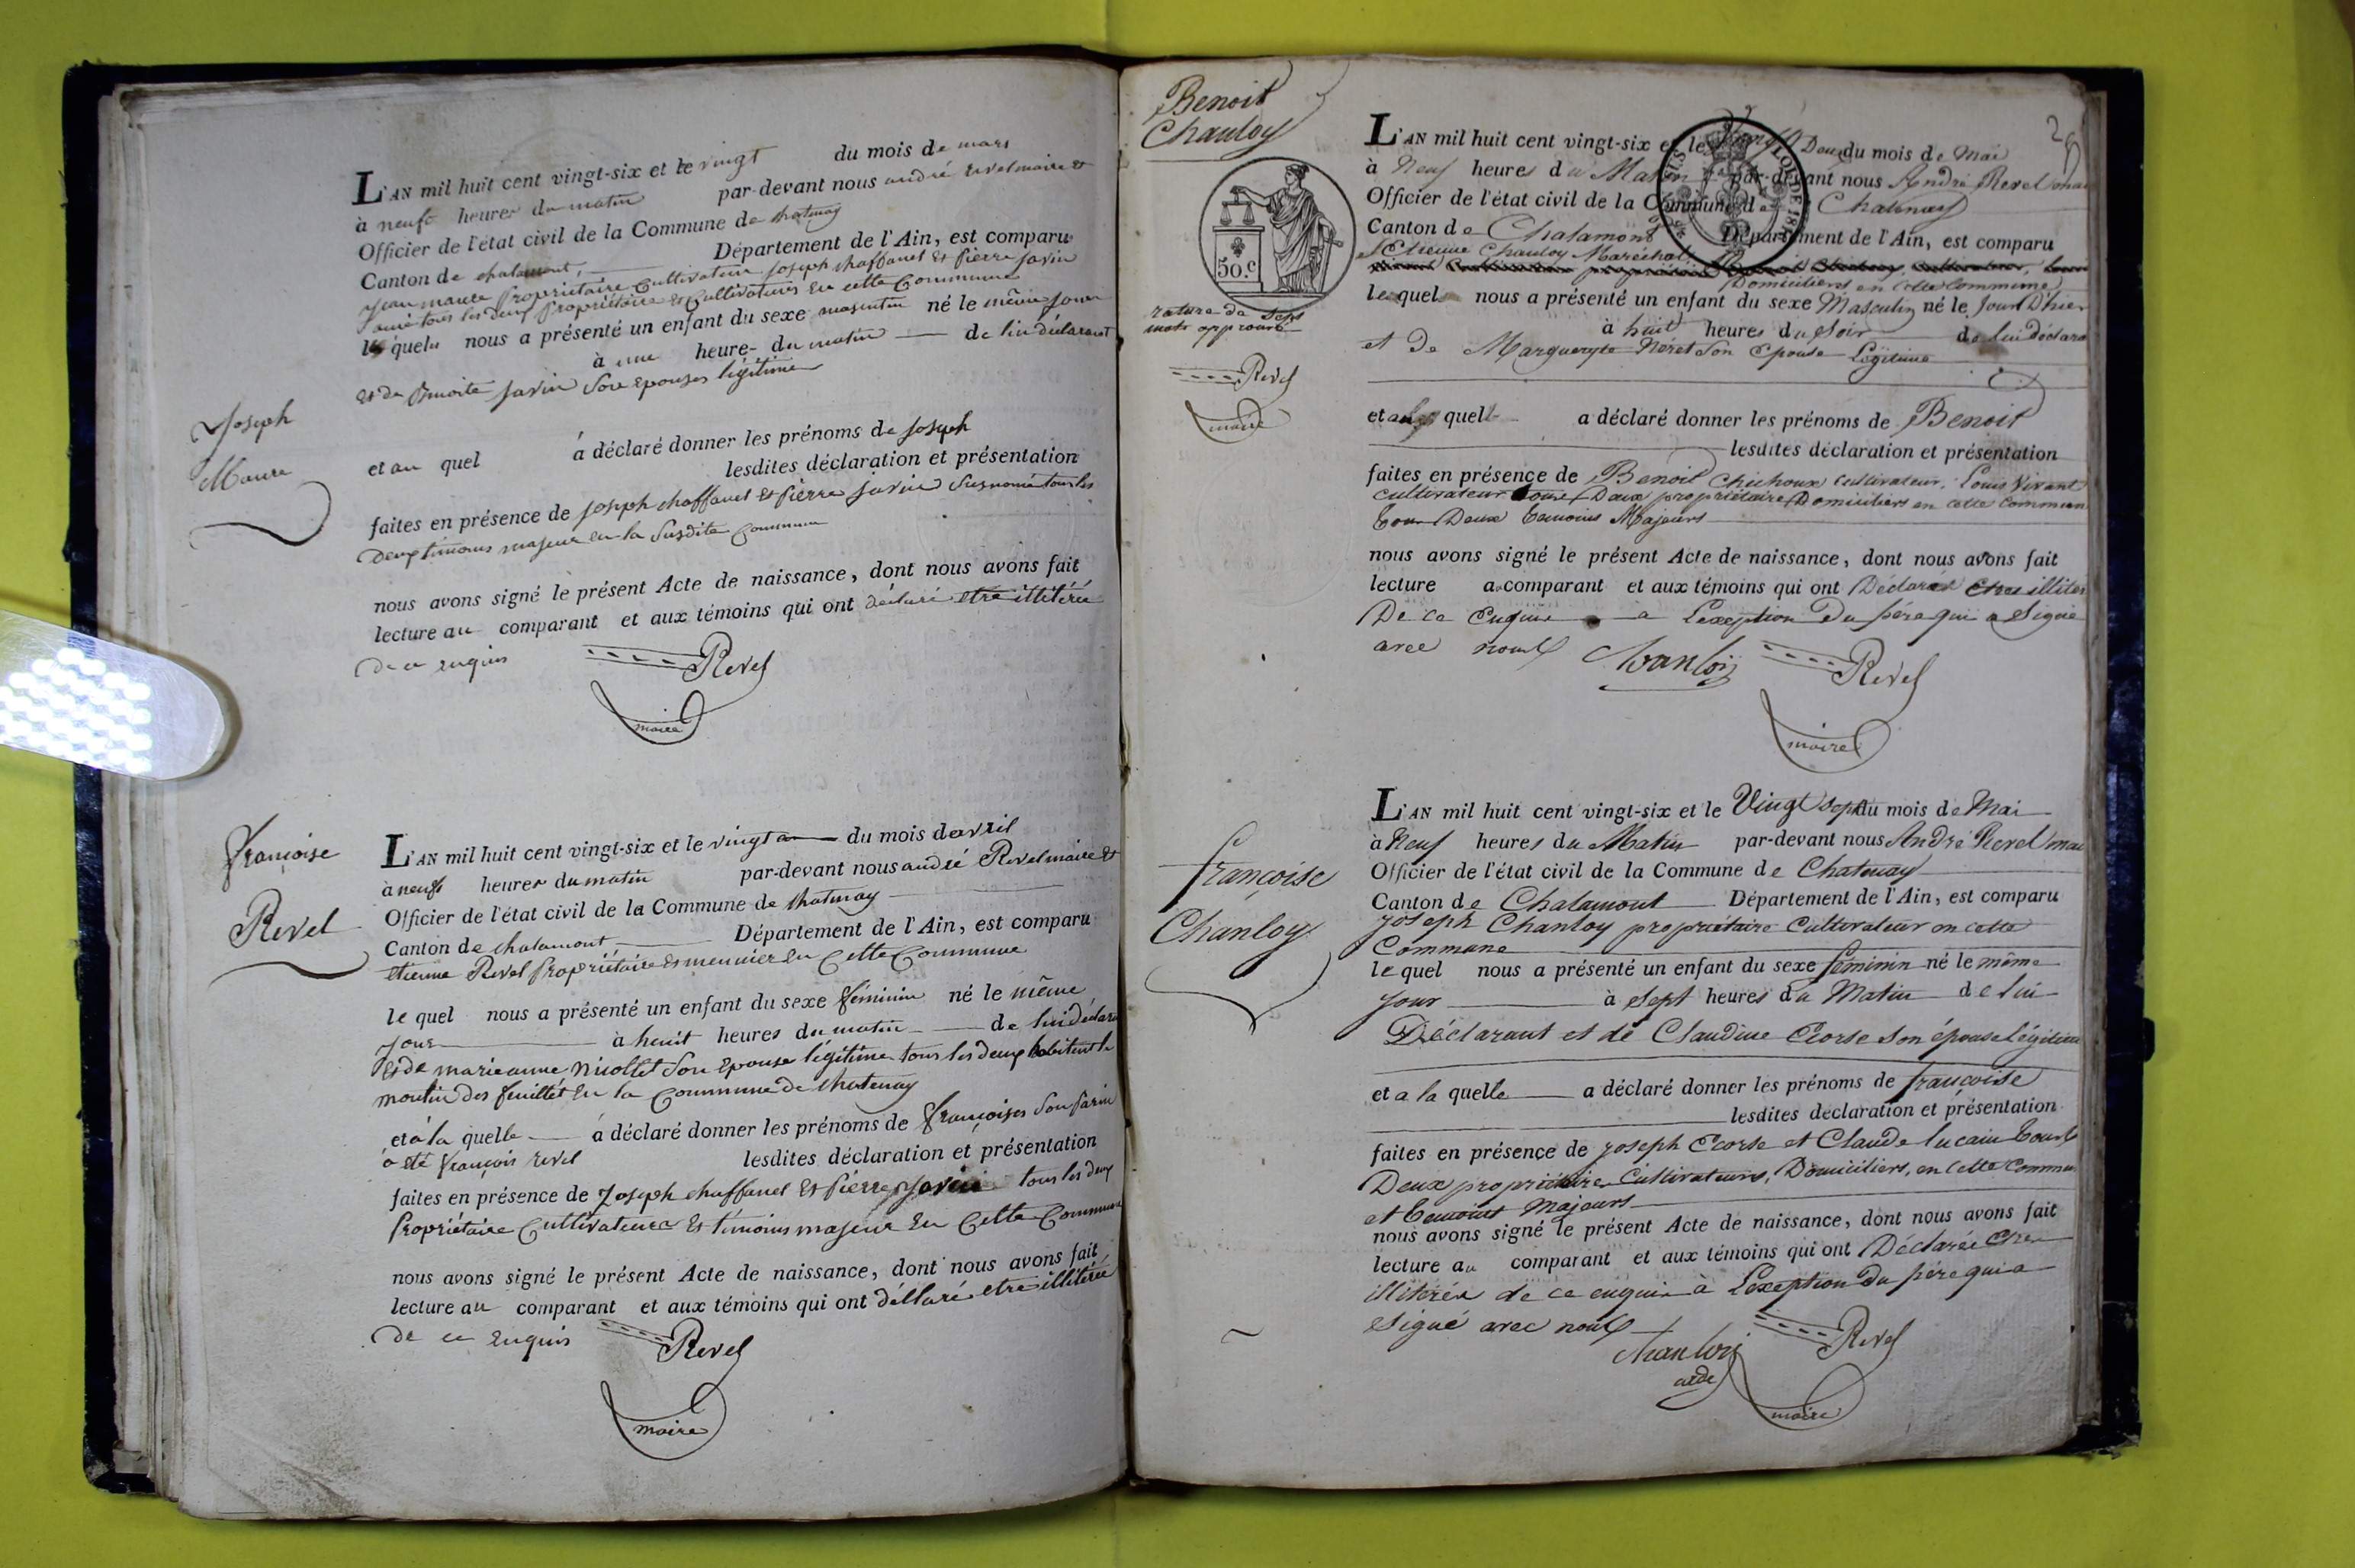 Joseph
Maure
L'AN mil huit cent vingt-six et le vingt du mois de mars
à neuf heures du matin par-devant nous andré revel maire et
Officier de l'état civil de la Commune de chatenay
Canton de chalamont, Département de l'Ain, est comparu
jean maure propriétaire Cultivateur joseph chaffanel Et pierre javin
tous les deux propriétaire Et Cultivateurs En cette Commune
lequels nous a présenté un enfant du sexe masculin né le même jour
à une heure du matin de lui déclarant
et de Benoite javin Son Epouse légitime
et au quel à déclaré donner les prénoms de joseph
lesdites déclaration et présentation
faites en présence de joseph chaffanel Et pierre javin Susnomé tous les
deux témoins majeur En la Susdite Commune
nous avons signé le présent Acte de naissance, dont nous avons fait
lecture au comparant et aux témoins qui ont déclaré etre illitérée
de ce Enquis Revel
maire
françoise
Revel
L'AN mil huit cent vingt-six et le vingt du mois de avril
à neuf heures du matin par-devant nous andré Revel maire Et
Officier de l'état civil de la Commune de chatenay
Canton de chalamont Département de l'Ain, est comparu
etienne Revel propriétaire Et meunier En Cette Commune
le quel nous a présenté un enfant du sexe féminin né le même
jour à huit heures du matin de lui déclara
Et de marieanne nicollet Son Epouse légitime tous les deux habitent le
moulin des feuillét En la Commune de chatenay
et à la quelle à déclaré donner les prénoms de françoises Son parin
à eté françois revel lesdites déclaration et présentation
faites en présence de Joseph chaffanel Et pierre javin tous les deux
propriétaire Cultivateurs Et témoins majeur En Cette Commune
nous avons signé le présent Acte de naissance, dont nous avons fait
lecture au comparant et aux témoins qui ont déclaré etre illitérée
de ce Enquis Revel
maire
Benoit
Chanloy
50.c
rature de sept
mots approuvé
Revel
maire
L'AN mil huit cent vingt-six et le Vingt Deux du mois de Mai
à Neuf heures du Matin par-devant nous André Revel mai
Officier de l'état civil de la Commune de Chatenay
Canton de Chalamont Département de l'Ain, est comparu
Etienne Chanloy Maréchal,
Domiciliers en cette commune
le quel nous a présenté un enfant du sexe Masculin né le Jour D'hier
à huit heures du Soir de lui déclara
et De Margueryte Néret Son Epouse Légitime
et au quel a déclaré donner les prénoms de Benoit
lesdites déclaration et présentation
faites en présence de Benoit Chichoux cultivateur, Louis Vivant
cultivateur tous Deux propriétaire Domiciliers en cette Commun
tous Deux temoins Majeurs
nous avons signé le présent Acte de naissance, dont nous avons fait
lecture a comparant et aux témoins qui ont Déclaré Etres illiter
De ce Enquis à L'exeption Du père qui a Signé
avec nous Chanloy Revel
maire
françoise
Chanloy
L'AN mil huit cent vingt-six et le Vingt sept du mois de Mai
à Neuf heures du Matin par-devant nous André Revel mai
Officier de l'état civil de la Commune de Chatenay
Canton de Chalamont Département de l'Ain, est comparu
joseph Chanloy propriétaire Cultivateur en cette
Commune
le quel nous a présenté un enfant du sexe féminin né le même
jour à Sept heures du Matin de lui
Déclarant et de Claudine Ecorse Son épouse légitime
et a la quelle a déclaré donner les prénoms de françoise
lesdites déclaration et présentation
faites en présence de joseph Ecorse et Claude lucain tous
Deux propriétaire Cultivateurs, Domiciliers, en cette Commun
et temoins Majeurs
nous avons signé le présent Acte de naissance, dont nous avons fait
lecture au comparant et aux témoins qui ont Déclarée Etre
illitérés de ce enquis à L'exeption Du père qui a
Signé avec nous
Chanloy Revel
maire